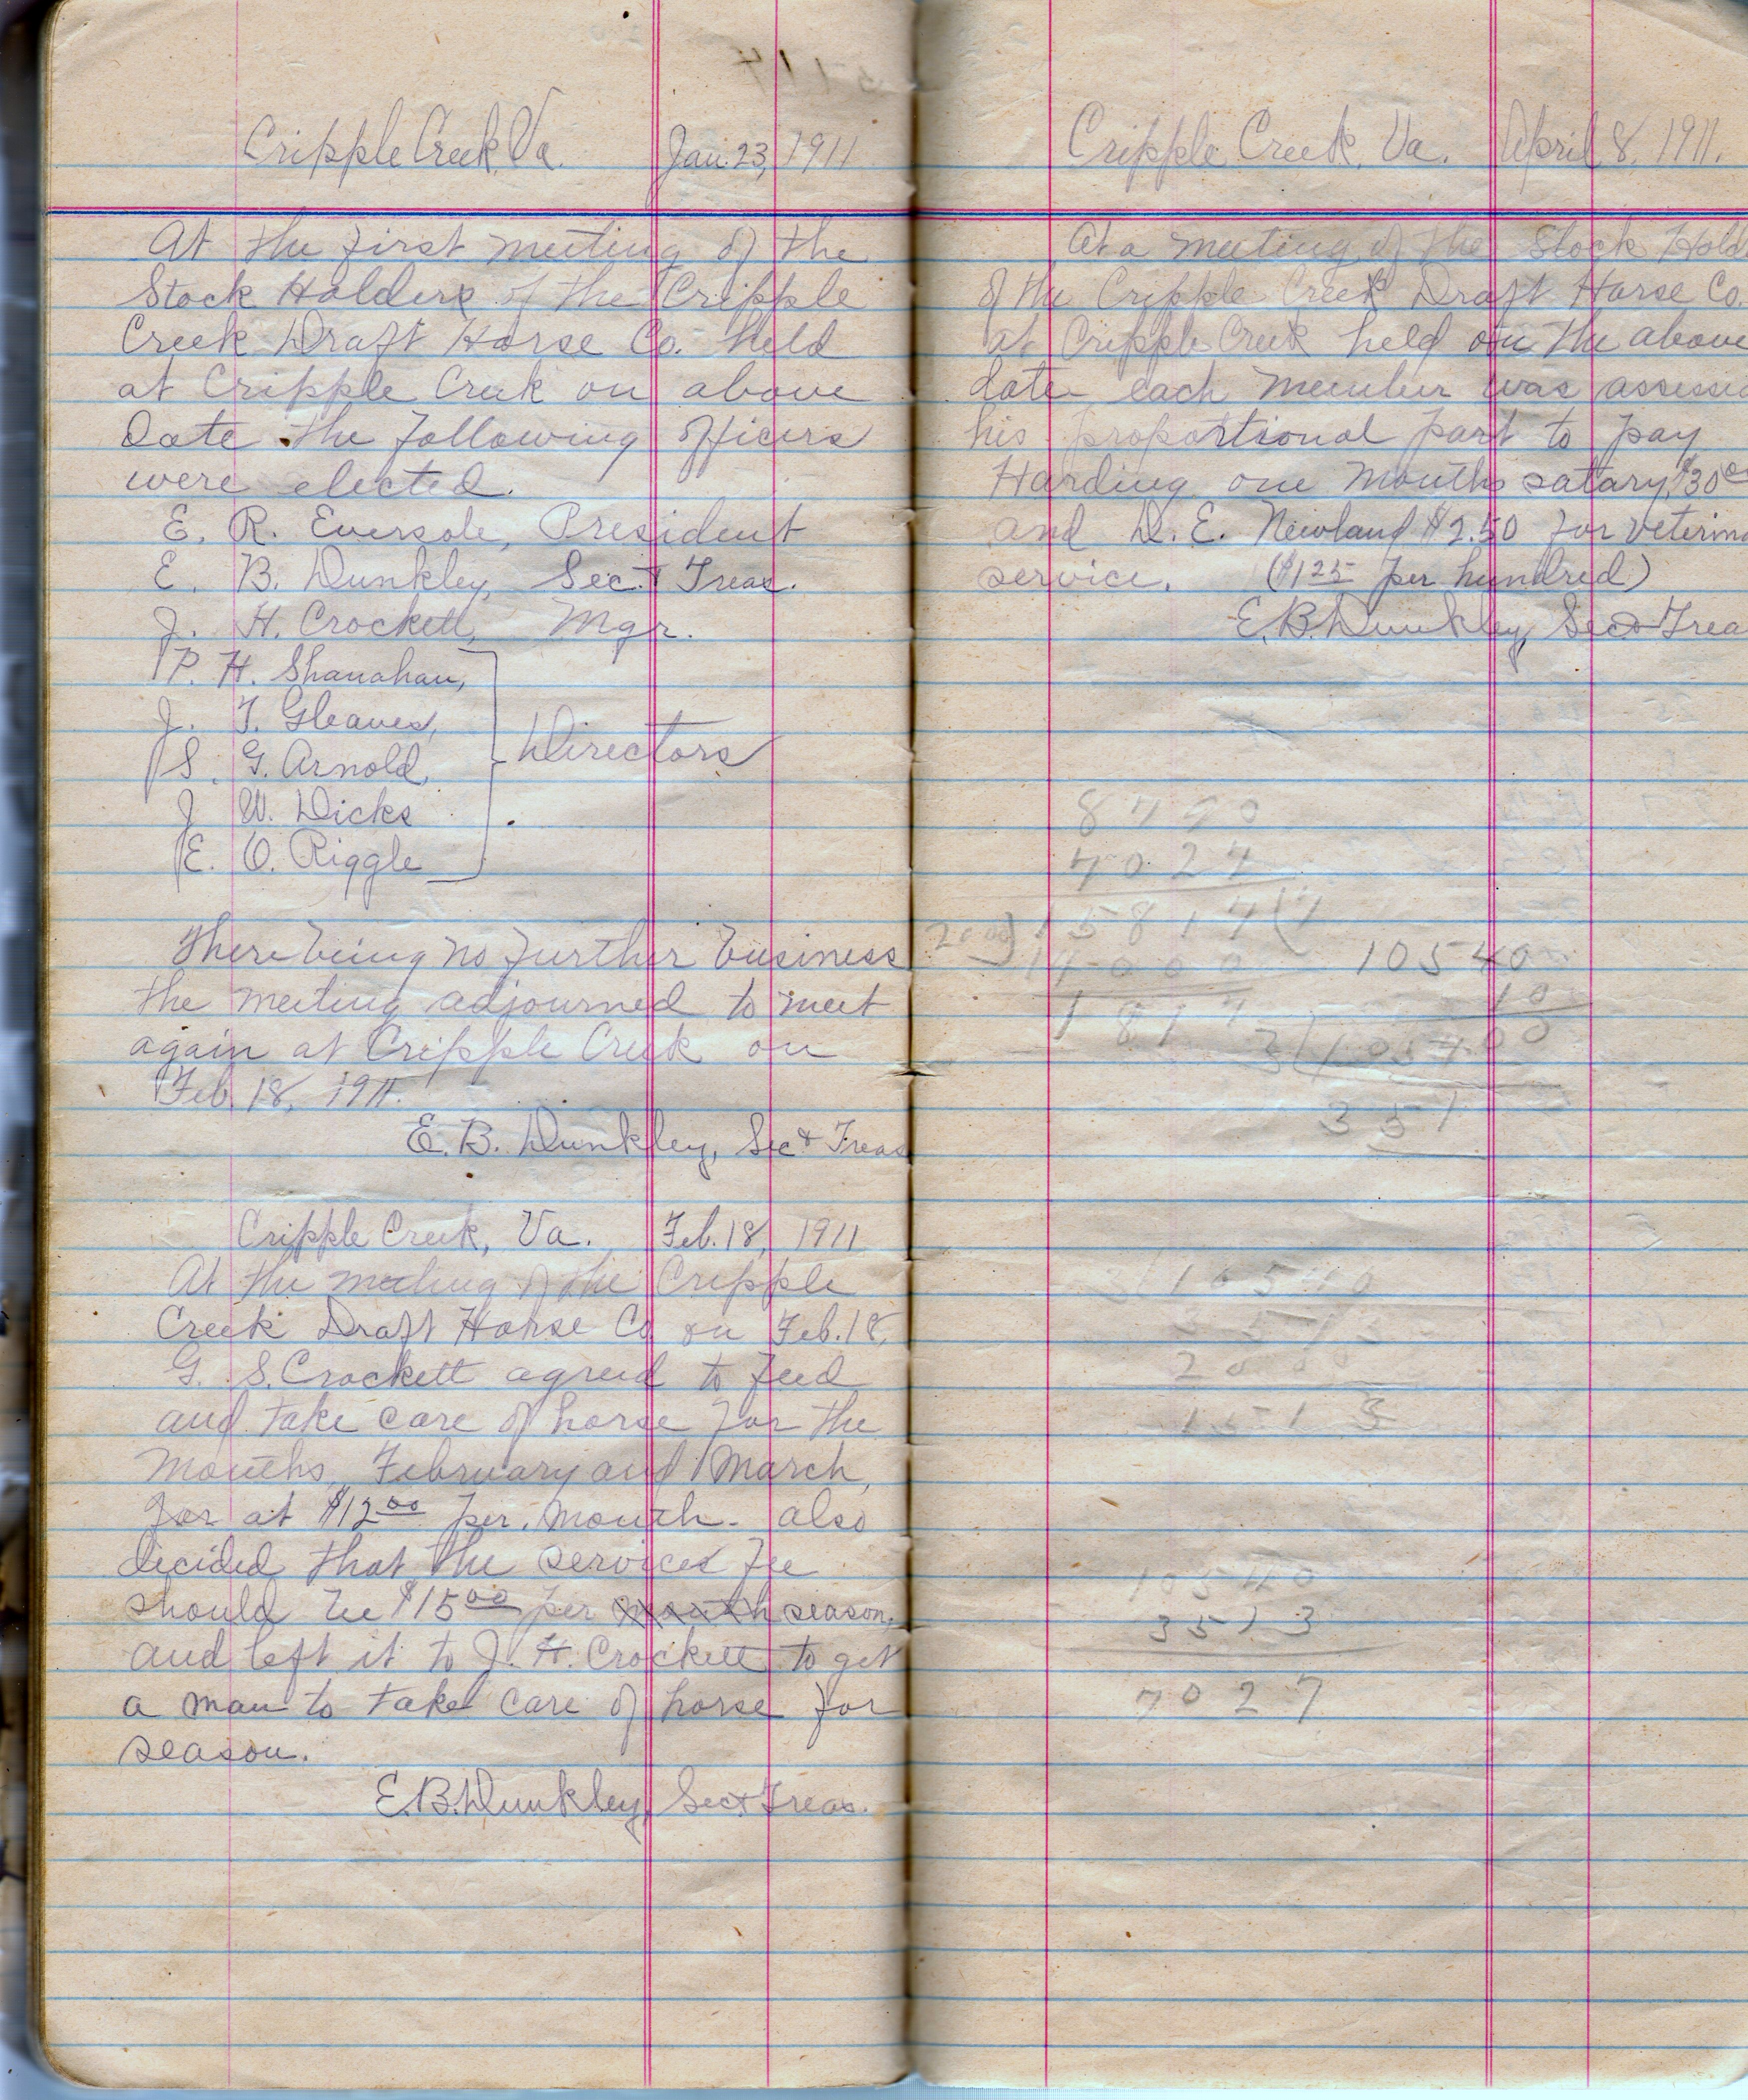 Cripple Creek, Va. Jan. 23, 1911
At the first meeting of the
Stock Holders of the Cripple
Creek Draft Horse Co. held
at Cripple Creek on above
Date the following officers
were elected.
E. R. Eversole, President
E. B. Dunkley, Sec. & Treas.
J. H. Crockett, Mgr.
P. H. Shanahan,
J. T. Gleaves,
S. G. Arnold,
Directors
J. W. Dicks
E. O. Riggle
There being no further business
the meeting adjourned to meet
again at Cripple Creek on
Feb. 18, 1911.
E. B. Dunkley, Sec & Treas
Cripple Creek, Va. Feb. 18, 1911
At the meeting of the Cripple
Creek Draft Horse Co on Feb. 18,
G. S. Crockett agreed to feed
and take care of horse for the
months, February and March,
for at $12.00 per. month. also
decided that the services fee
should be $15.00 per month season,
and left it to J. H. Crockett to get
a man to take care of horse for
season.
E. B. Dunkley, Sec & Treas.
Cripple Creek, Va. April 8, 1911.
At a meeting of the Stock Hold
of the Cripple Creek Draft Horse Co.
at Cripple Creek held on the above
date each member was assesse
his proportional part to pay
Harding one months satary, $30
and D. E. Newland $2.50 for veterina
service. ($1.25 per hundred)
E. B. Dunkley, Sec & Trea
4027
15814
10540
14000
10
1814
3) 105400
351
10540
3513
7027